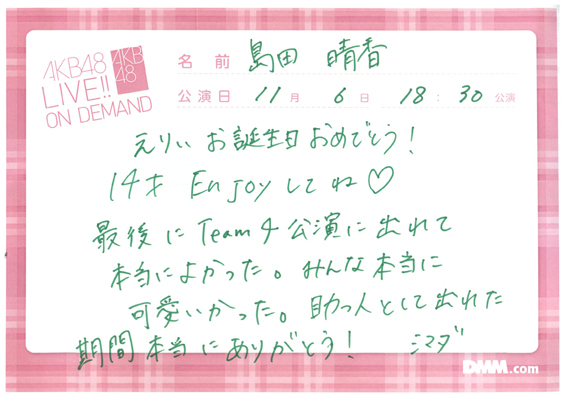 AKB48
LIVE!!
ON DEMAND
AKB
48
名前 島田 晴香
公演日 11月 6日 18:30 公演
えりぃ お誕生日 おめでとう!
14才 Enjoyしてね♡
最後に Team4公演に出れて
本当によかった。みんな本当に
可愛いかった。助っ人として出れた
期間本当にありがとう! シマダ
DMM.com